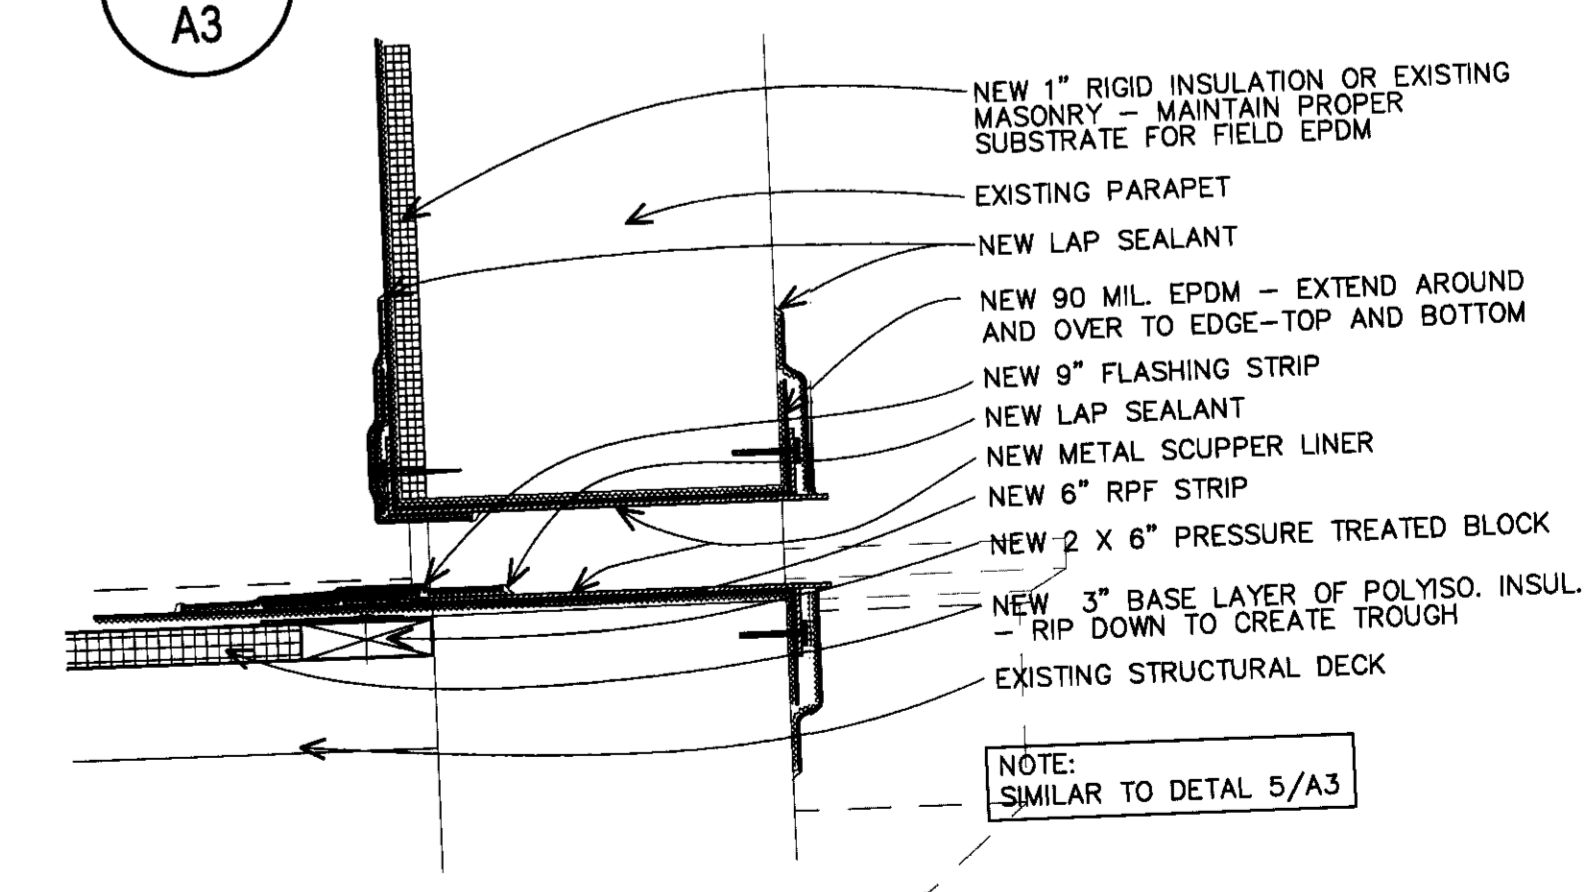 A3
NEW 1" RIGID INSULATION OR EXISTING
MASONRY – MAINTAIN PROPER
SUBSTRATE FOR FIELD EPDM
EXISTING PARAPET
NEW LAP SEALANT
NEW 90 MIL. EPDM – EXTEND AROUND
AND OVER TO EDGE–TOP AND BOTTOM
NEW 9" FLASHING STRIP
NEW LAP SEALANT
NEW METAL SCUPPER LINER
NEW 6" RPF STRIP
NEW 2 X 6" PRESSURE TREATED BLOCK
NEW 3" BASE LAYER OF POLYISO. INSUL.
– RIP DOWN TO CREATE TROUGH
EXISTING STRUCTURAL DECK
NOTE:
SIMILAR TO DETAL 5/A3